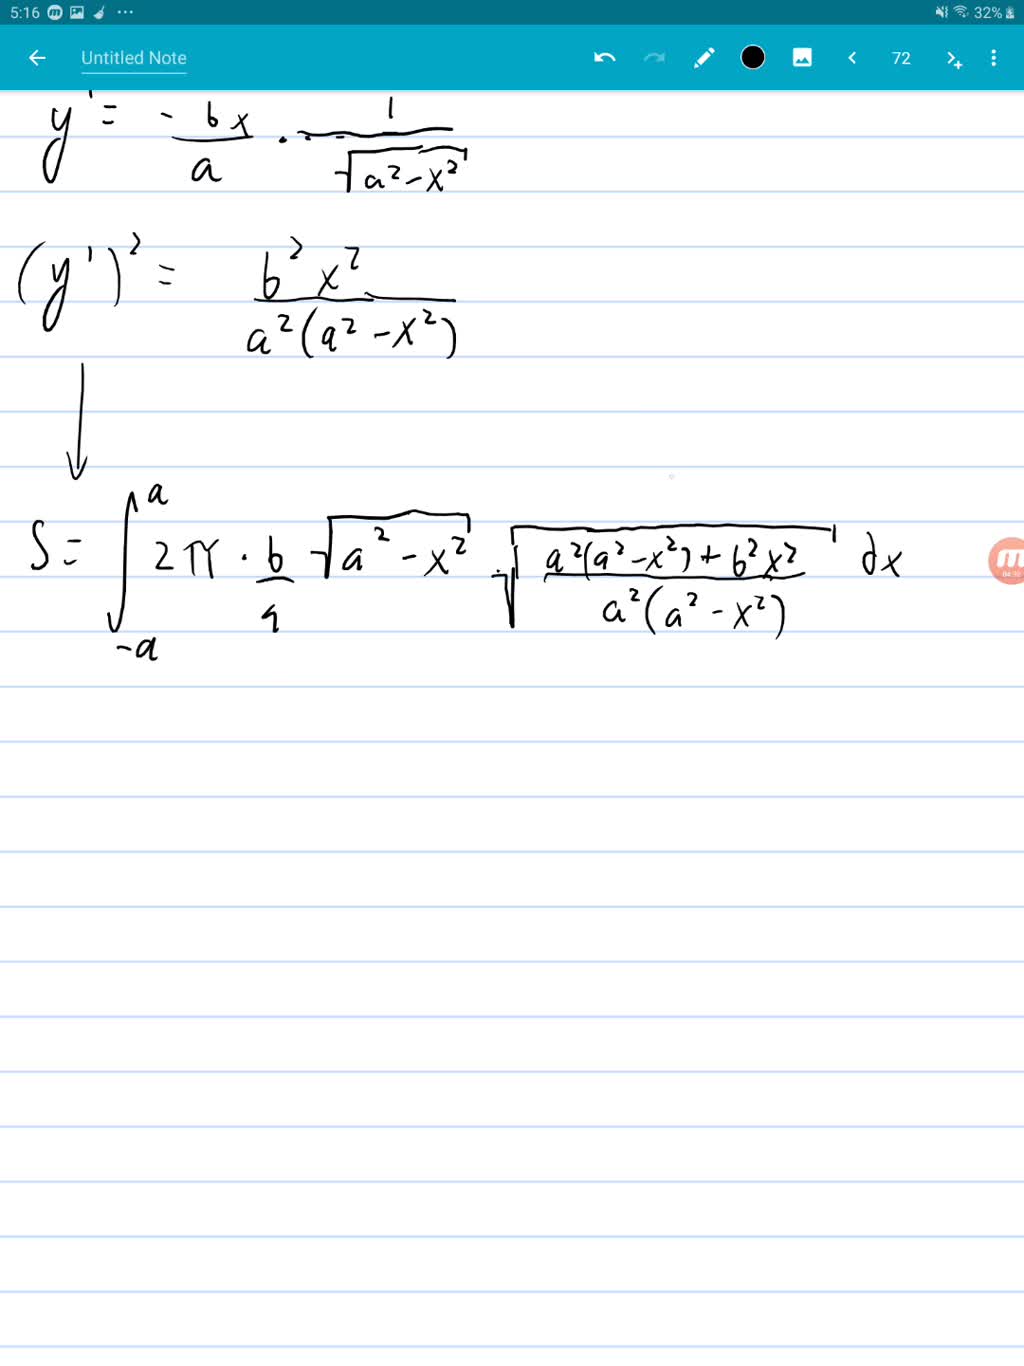 5:16 32%
Untitled Note 72
y' = -bx/a · 1/√(a² - x²)
(y')² = b² x² / a²(a² - x²)
S = ∫_{-a}^{a} 2π · b/a √(a² - x²) √((a²(a² - x²) + b² x²) / a²(a² - x²)) dx
04:30